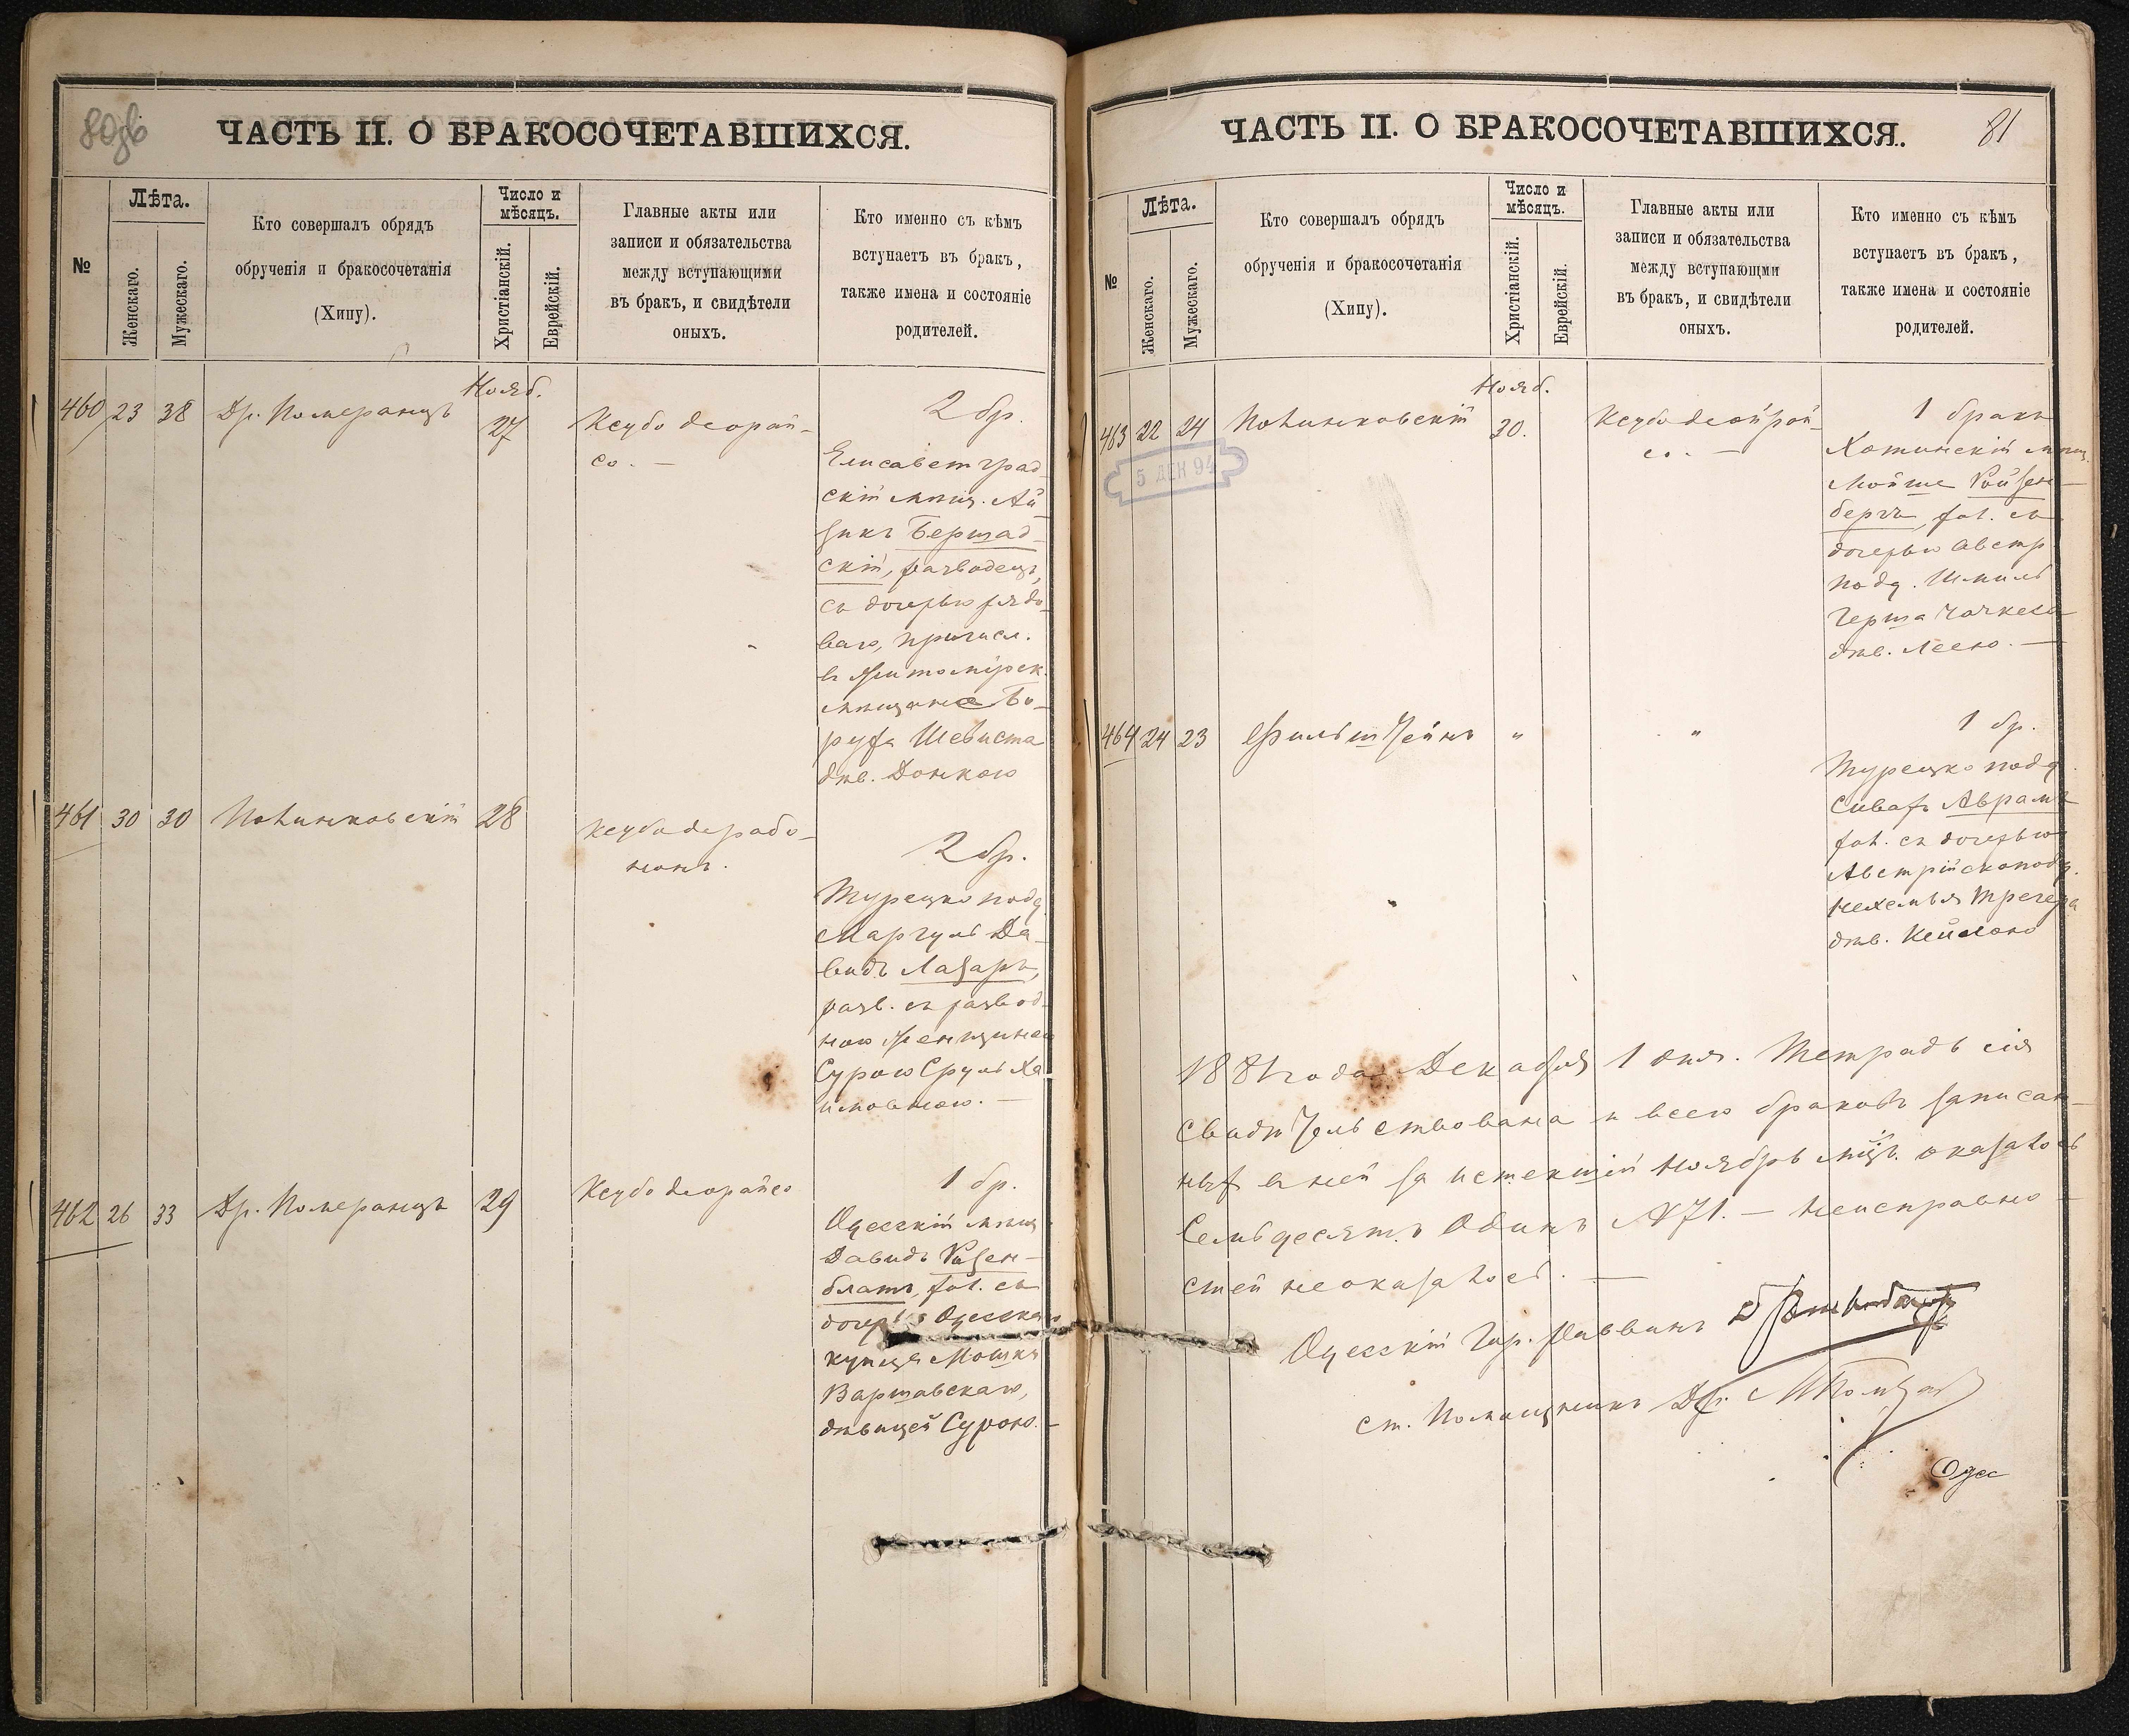 80об
ЧАСТЬ II. О БРАКОСОЧЕТАВШИХСЯ.
№
Лѣта.
Женскаго.
Мужескаго.
Кто совершалъ обрядъ
обрученія и бракосочетанія
(Хипу).
Число и
мѣсяцъ.
Христіанскій.
Еврейскій.
Главные акты или
записи и обязательства
между вступающими
въ бракъ, и свидѣтели
оныхъ.
Кто именно съ кѣмъ
вступаетъ въ бракъ,
также имена и состояніе
родителей.
460 23 38 Др. Померанцъ
Нояб.
27
Ксубо деорай-
со. —
2 бр.
Елисаветград
скій мѣщ. Ай-
зикъ Бершад-
скій, разводецъ,
съ дочерью рядо-
ваго, причисл.
въ Житомірск.
мѣщане Бо-
руха Шевиста
дѣв. Донкою
461 30 30 Полинковскій 28
Ксубо дерабо-
нонъ.
2 бр.
Турецко подд
Маргуль Да-
видъ Лазаръ,
разв. съ развод-
ною женщиною
Сурою Сруль Ха
имовною. —
462 26 33 Др. Померанцъ 29
Ксубо деорайсо
1 бр.
Одесскій мѣщ.
Давидъ Розен-
блатъ, хол. съ
дочерью Одесскаго
купца Мошки
Варшавскаго,
дѣвицей Сурою. —
81
ЧАСТЬ II. О БРАКОСОЧЕТАВШИХСЯ.
№
Лѣта.
Женскаго.
Мужескаго.
Кто совершалъ обрядъ
обрученія и бракосочетанія
(Хипу).
Число и
мѣсяцъ.
Христіанскій.
Еврейскій.
Главные акты или
записи и обязательства
между вступающми
въ бракъ, и свидѣтели
оныхъ.
Кто именно съ кѣмъ
вступаетъ въ бракъ,
также имена и состояніе
родителей.
463 22 24 Полинковскій
Нояб.
30.
Ксубо деойрой-
со. —
5 ДЕК 94
1 бракъ
Хотинскій мѣщ.
Мойше Ройзен-
бергъ, хол. съ
дочерью Австр.
подд. Шмиль
Герша
дѣв. Леею. —
464 24 23 Фильштейнъ " "
1 бр.
Турецко подд.
Сивах Аврамъ
хол. съ дочерью
Австрійскоподд.
Нехемья Трегера
дѣв. Кейлою
1881 года Декабря 1 дня. Тетрадь сія
свидѣтельствована и всего браковъ записан-
ныхъ въ ней за истекшій Ноябрь мѣц. оказалось
Семьдесятъ Одинъ №71. — Неисправно-
стей не оказалось. —
Одесскій Гор. Раввинъ
ст. Помощникъ Др.
Одес